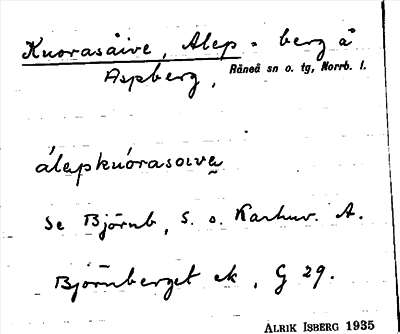 Kuorasåive, Alep = berg å
Aspberg,
Råneå sn o. tg, Norrb. l.
álapkuórasoıva̰
Se Björnb, S. o. Karhuv. A.
Björnberget ek, G 29.
ALRIK ISBERG 1935